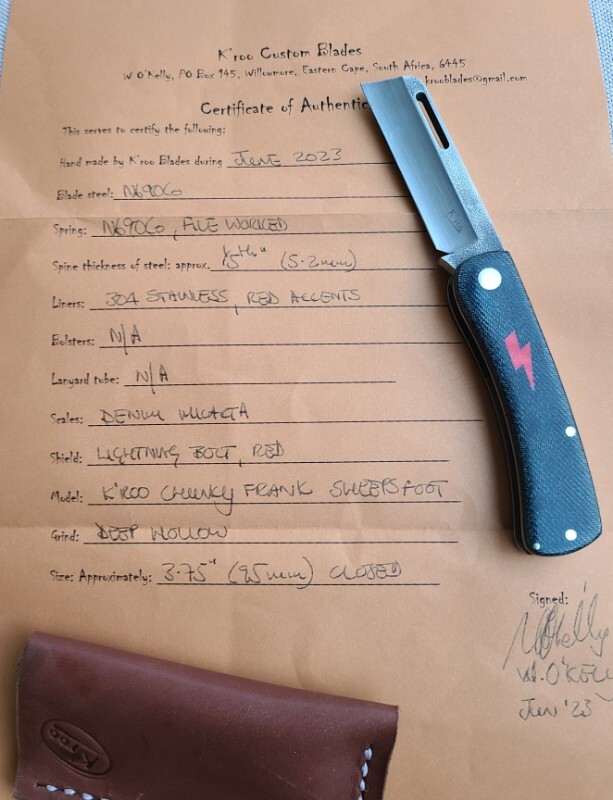 K'roo Custom Blades
W O'Kelly, PO Box 145, Willowmore, Eastern Cape, South Africa, 6445
krooblades@gmail.com
Certificate of Authentic
This serves to certify the following:
Hand made by K'roo Blades during JUNE 2023
Blade steel: N690Co
Spring: N690Co, FILE WORKED
Spine thickness of steel: approx. (5.2mm)
Liners: 304 STAINLESS, RED ACCENTS
Bolsters: N/A
Lanyard tube: N/A
Scales: DENIM MICARTA
Shield: LIGHTNING BOLT, RED
Model: K'ROO CHUNKY FRANK SHEEPSFOOT
Grind: DEEP HOLLOW
Size: Approximately: 3.75" (95mm) CLOSED
Signed:
W. O'KELLY
JUN '23
K'roo
K'roo